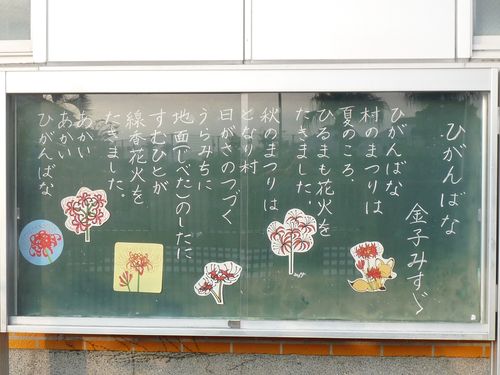 ひがんばな
金子みすゞ
ひがんばな
村のまつりは
夏のころ、
ひるまも花火を
たきました。
秋のまつりは
となり村
日がさのつづく
うらみちに
地面(じべた)のしたに
すむひとが
線香花火を
たきました。
あかい
あかい
ひがんばな